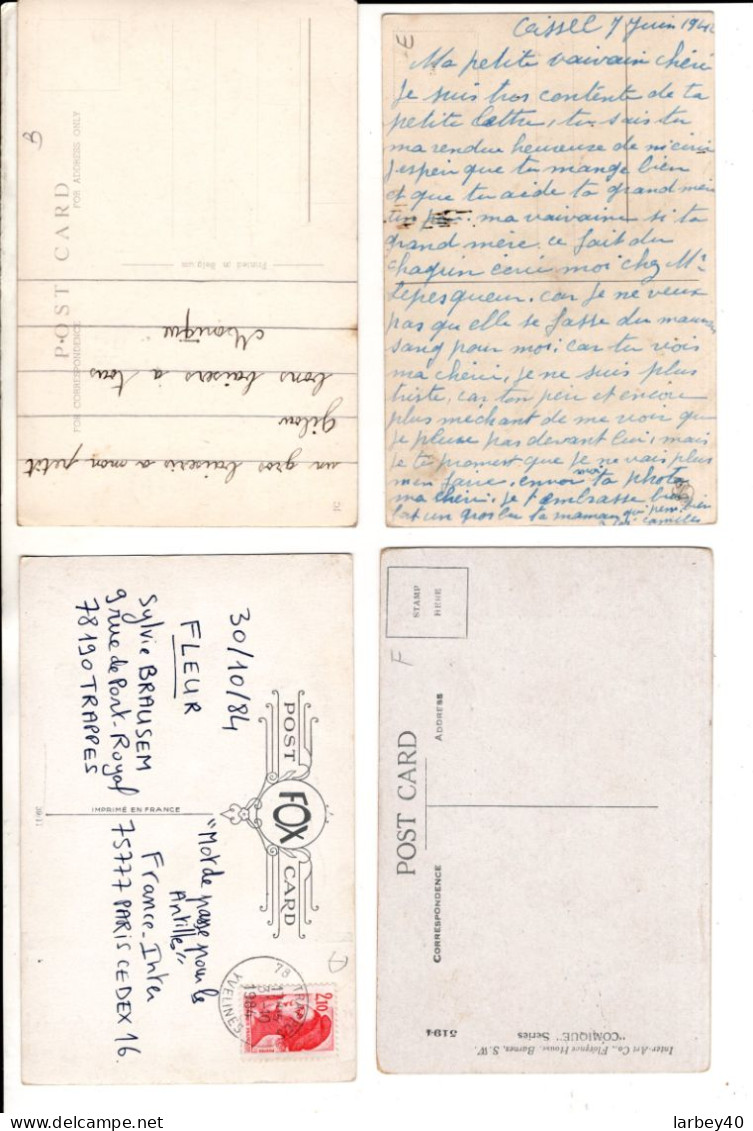 B
POST CARD
FOR ADDRESS ONLY
FOR CORRESPONDENCE
Printed in Belgium
un gros baiseris a mon petit
Gilou
bons baisers à tous
Monique
E
Cassel 7 juin 194
Ma petite vaivain chéri
Je suis tros contente de ta
petite lettre, tu sais tu
ma rendue heureuse de
J'espeir que tu mange bien
et que tu aide ta grand mère
un peu. ma vaivaine si ta
grand mère. ce fait du
chagrin écrie moi chez Mr
Lepesqueur. car je ne veux
pas qu elle se fasse du mauvais
sang pour moi. car tu vois
ma chérie, je ne suis plus
triste, car ton père et encore
plus méchant de me voir que
je pleure pas devant lui, mais
je te promest que je ne vais plus
m'en faire, envoi moi ta photo
ma chérie. Je t'embrasse bien
fort un gros bec ta maman qui pense bien
30/10/84
FLEUR
Sylvie BRAUSEM
9 rue de Port-Royal
78190 TRAPPES
POST FOX CARD
IMPRIMÉ EN FRANCE
"Mot de passe pour les
Antilles"
France-Inter
75777 PARIS CEDEX 16
78 TRAPPES
1984
YVELINES
2,10
D
STAMP
HERE
F
POST CARD
ADDRESS
CORRESPONDENCE
Inter-Art Co., Florence House, Barnes, S.W.
"COMIQUE" Series
5194
larbey40